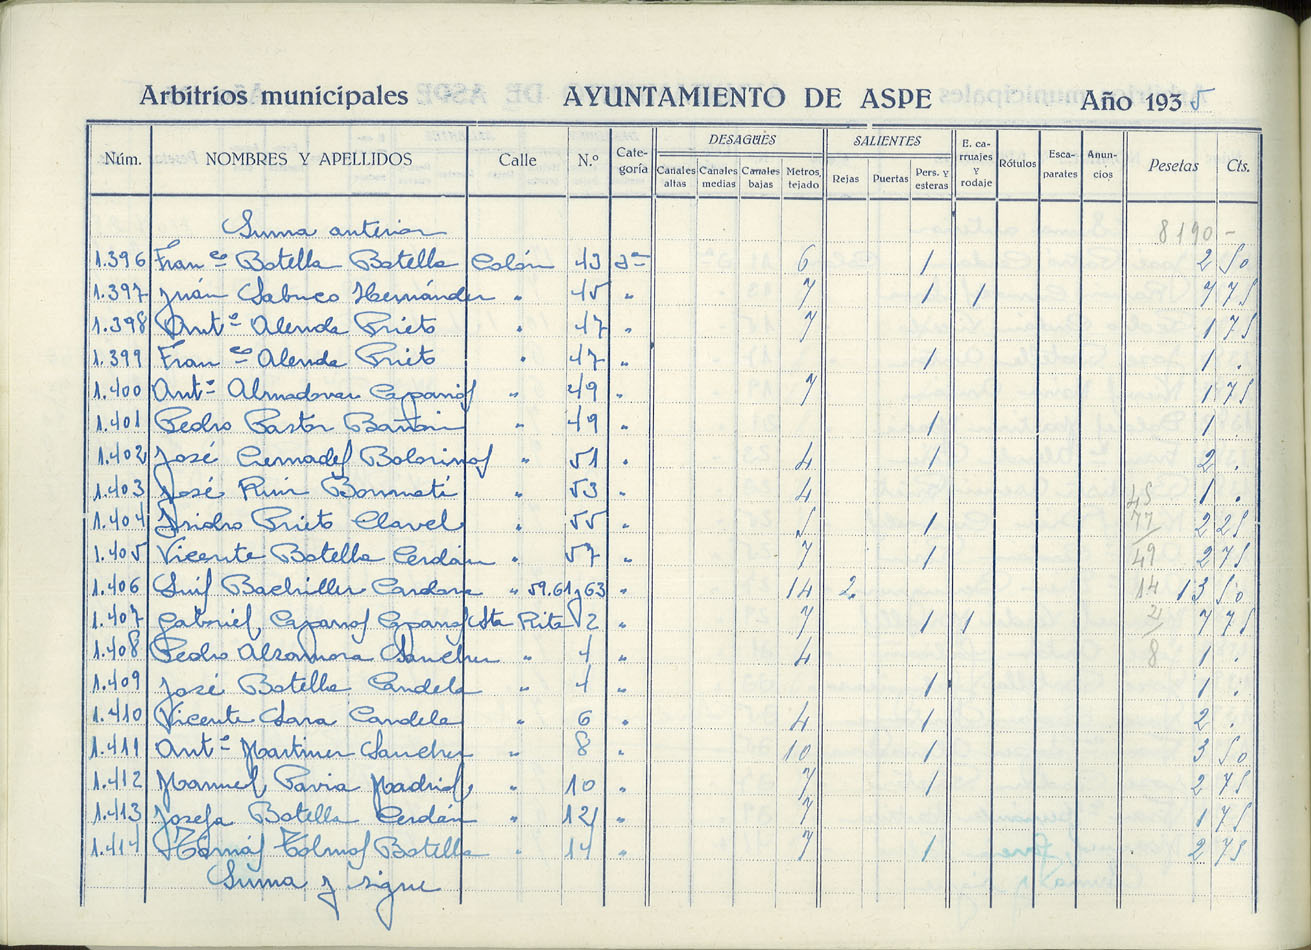 Arbitrios municipales AYUNTAMIENTO DE ASPE Año 1935
DESAGÜES SALIENTES
Núm. NOMBRES Y APELLIDOS Calle N.º Cate-goría Canales altas Canales medias Canales bajas Metros tejado Rejas Puertas Pers. y esteras E. ca-rruajes y rodaje Rótulos Esca-parates Anun-cios Pesetas Cts.
Suma anterior 8190 -
1.396 Franco Botella Botella Colón 43 3ª 6 1 2 50
1.397 Juán Sabuco Hernández " 45 " 7 1 1 7 75
1.398 Antº Alenda Prieto " 47 " 7 1 75
1.399 Franco Alenda Prieto " 47 " 1 1 .
1.400 Antº Almodovar " 49 " 7 1 75
1.401 Pedro Pastor " 49 " 1 1 .
1.402 José Bolorinos " 51 " 4 1 2 .
1.403 José Bonmatí " 53 " 4 45 1 .
1.404 Isidro Prieto Clavel " 55 " 5 1 77 2 25
1.405 Vicente Botella Cerdán " 57 " 7 1 49 2 75
1.406 Luis Bachiller Cardona " 59.61 y 63 " 14 2 14 13 50
1.407 Gabriel Caparrós Caparrós Sta Rita 2 " 7 1 1 7 75
1.408 Pedro Alzamora Sanchez " 4 " 4 8 1 .
1.409 José Botella Candela " 4 " 1 1 .
1.410 Vicente Candela " 6 " 4 1 2 .
1.411 Antº Martinez Sanchez " 8 " 10 1 3 50
1.412 Manuel Pavia Madrid " 10 " 7 1 2 75
1.413 Josefa Botella Cerdán " 12 " 7 1 75
1.414 Tomás Botella " 14 " 7 1 2 75
Suma y sigue